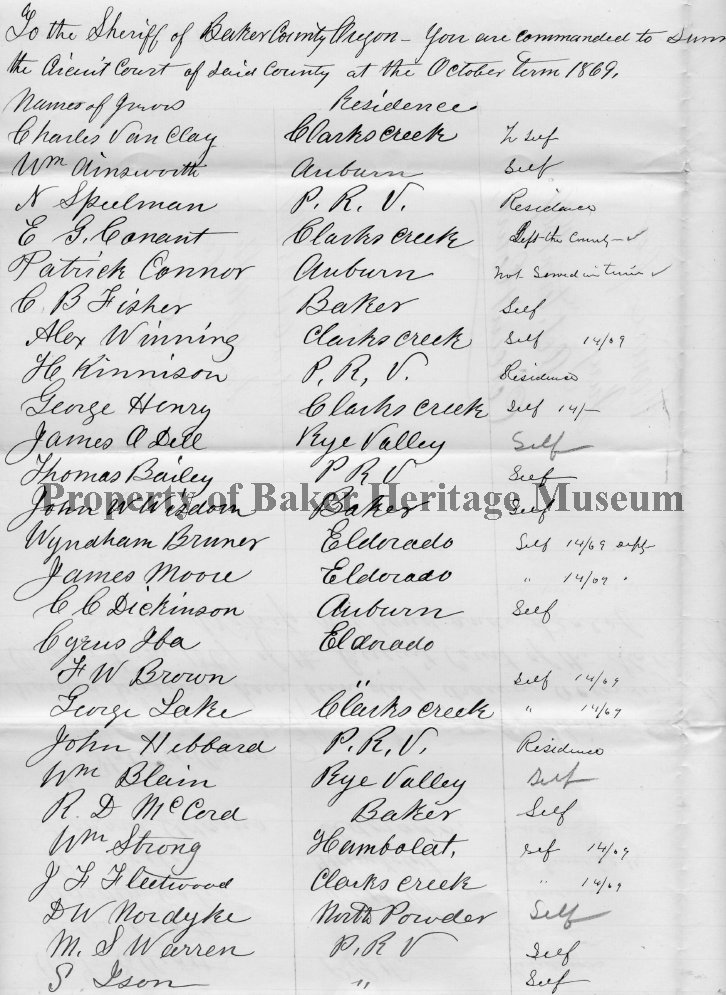 To the Sheriff of Baker County Oregon - You are commanded to Sum
the Circuit Court of said County at the October term 1869.
Names of Jurors Residence
Charles Van Clay Clarks creek Self
Wm Ainsworth Auburn Self
N Speelman P. R. V. Residence
E G. Conant Clarks creek Left the County ✓
Patrick Connor Auburn Not Served in time ✓
C B Fisher Baker Self
Alex Winning Clarks creek Self 14/69
H Kinnison P. R. V. Residence
George Henry Clarks creek Self 14/-
James O Dell Rye Valley Self
Thomas Bailey P R V Self
John W Wisdom Baker Self
Property of Baker Heritage Museum
Wyndham Bruner Eldorado Self 14/69
James Moore Eldorado " 14/69 "
C C Dickinson Auburn Self
Cyrus Iba Eldorado
F W Brown " Self 14/69
George Lake Clarks creek " 14/69
John Hibbard P. R. V. Residence
Wm Blain Rye Valley Self
R. D McCord Baker Self
Wm Strong Humbolat. Self 14/69
J F Fleetwood Clarks creek " 14/69
D W Nordyke North Powder Self
M. S Warren P. R V Self
S. Ison " Self